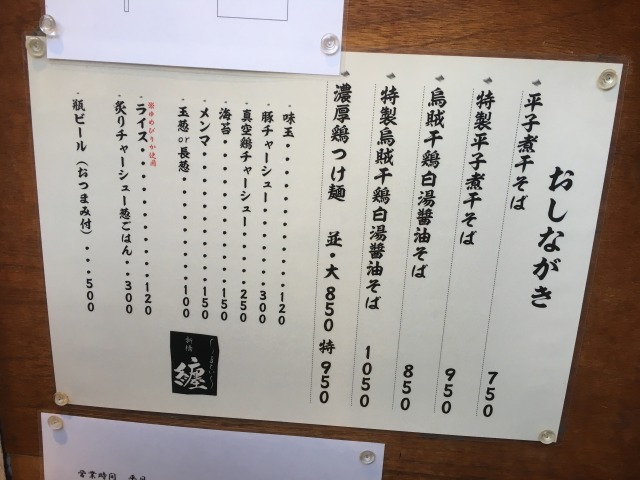 おしながき
平子煮干そば 750
特製平子煮干そば 950
烏賊干鶏白湯醤油そば 850
特製烏賊干鶏白湯醤油そば 1050
濃厚鶏つけ麺 並・大 850 特 950
・味玉・・・・・・・・・・・120
・豚チャーシュー・・・・・・300
・真空鶏チャーシュー・・・・250
・海苔・・・・・・・・・・・150
・メンマ・・・・・・・・・・150
・玉葱or長葱・・・・・・・・100
※ゆめぴりか使用
・ライス・・・・・・・・・・120
・炙りチャーシュー葱ごはん・・・300
・瓶ビール(おつまみ付)・・・・500
新橋
纏
営業時間 平日